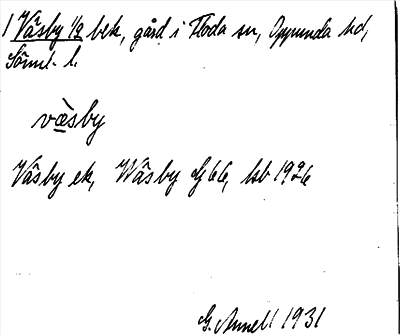 1 Väsby 1/2 bck, gård i Floda sn, Oppunda hd,
Söml. l.
vä̀sby
Väsby ek, Wäsby Gj66, lsb 1926
G. Annell 1931